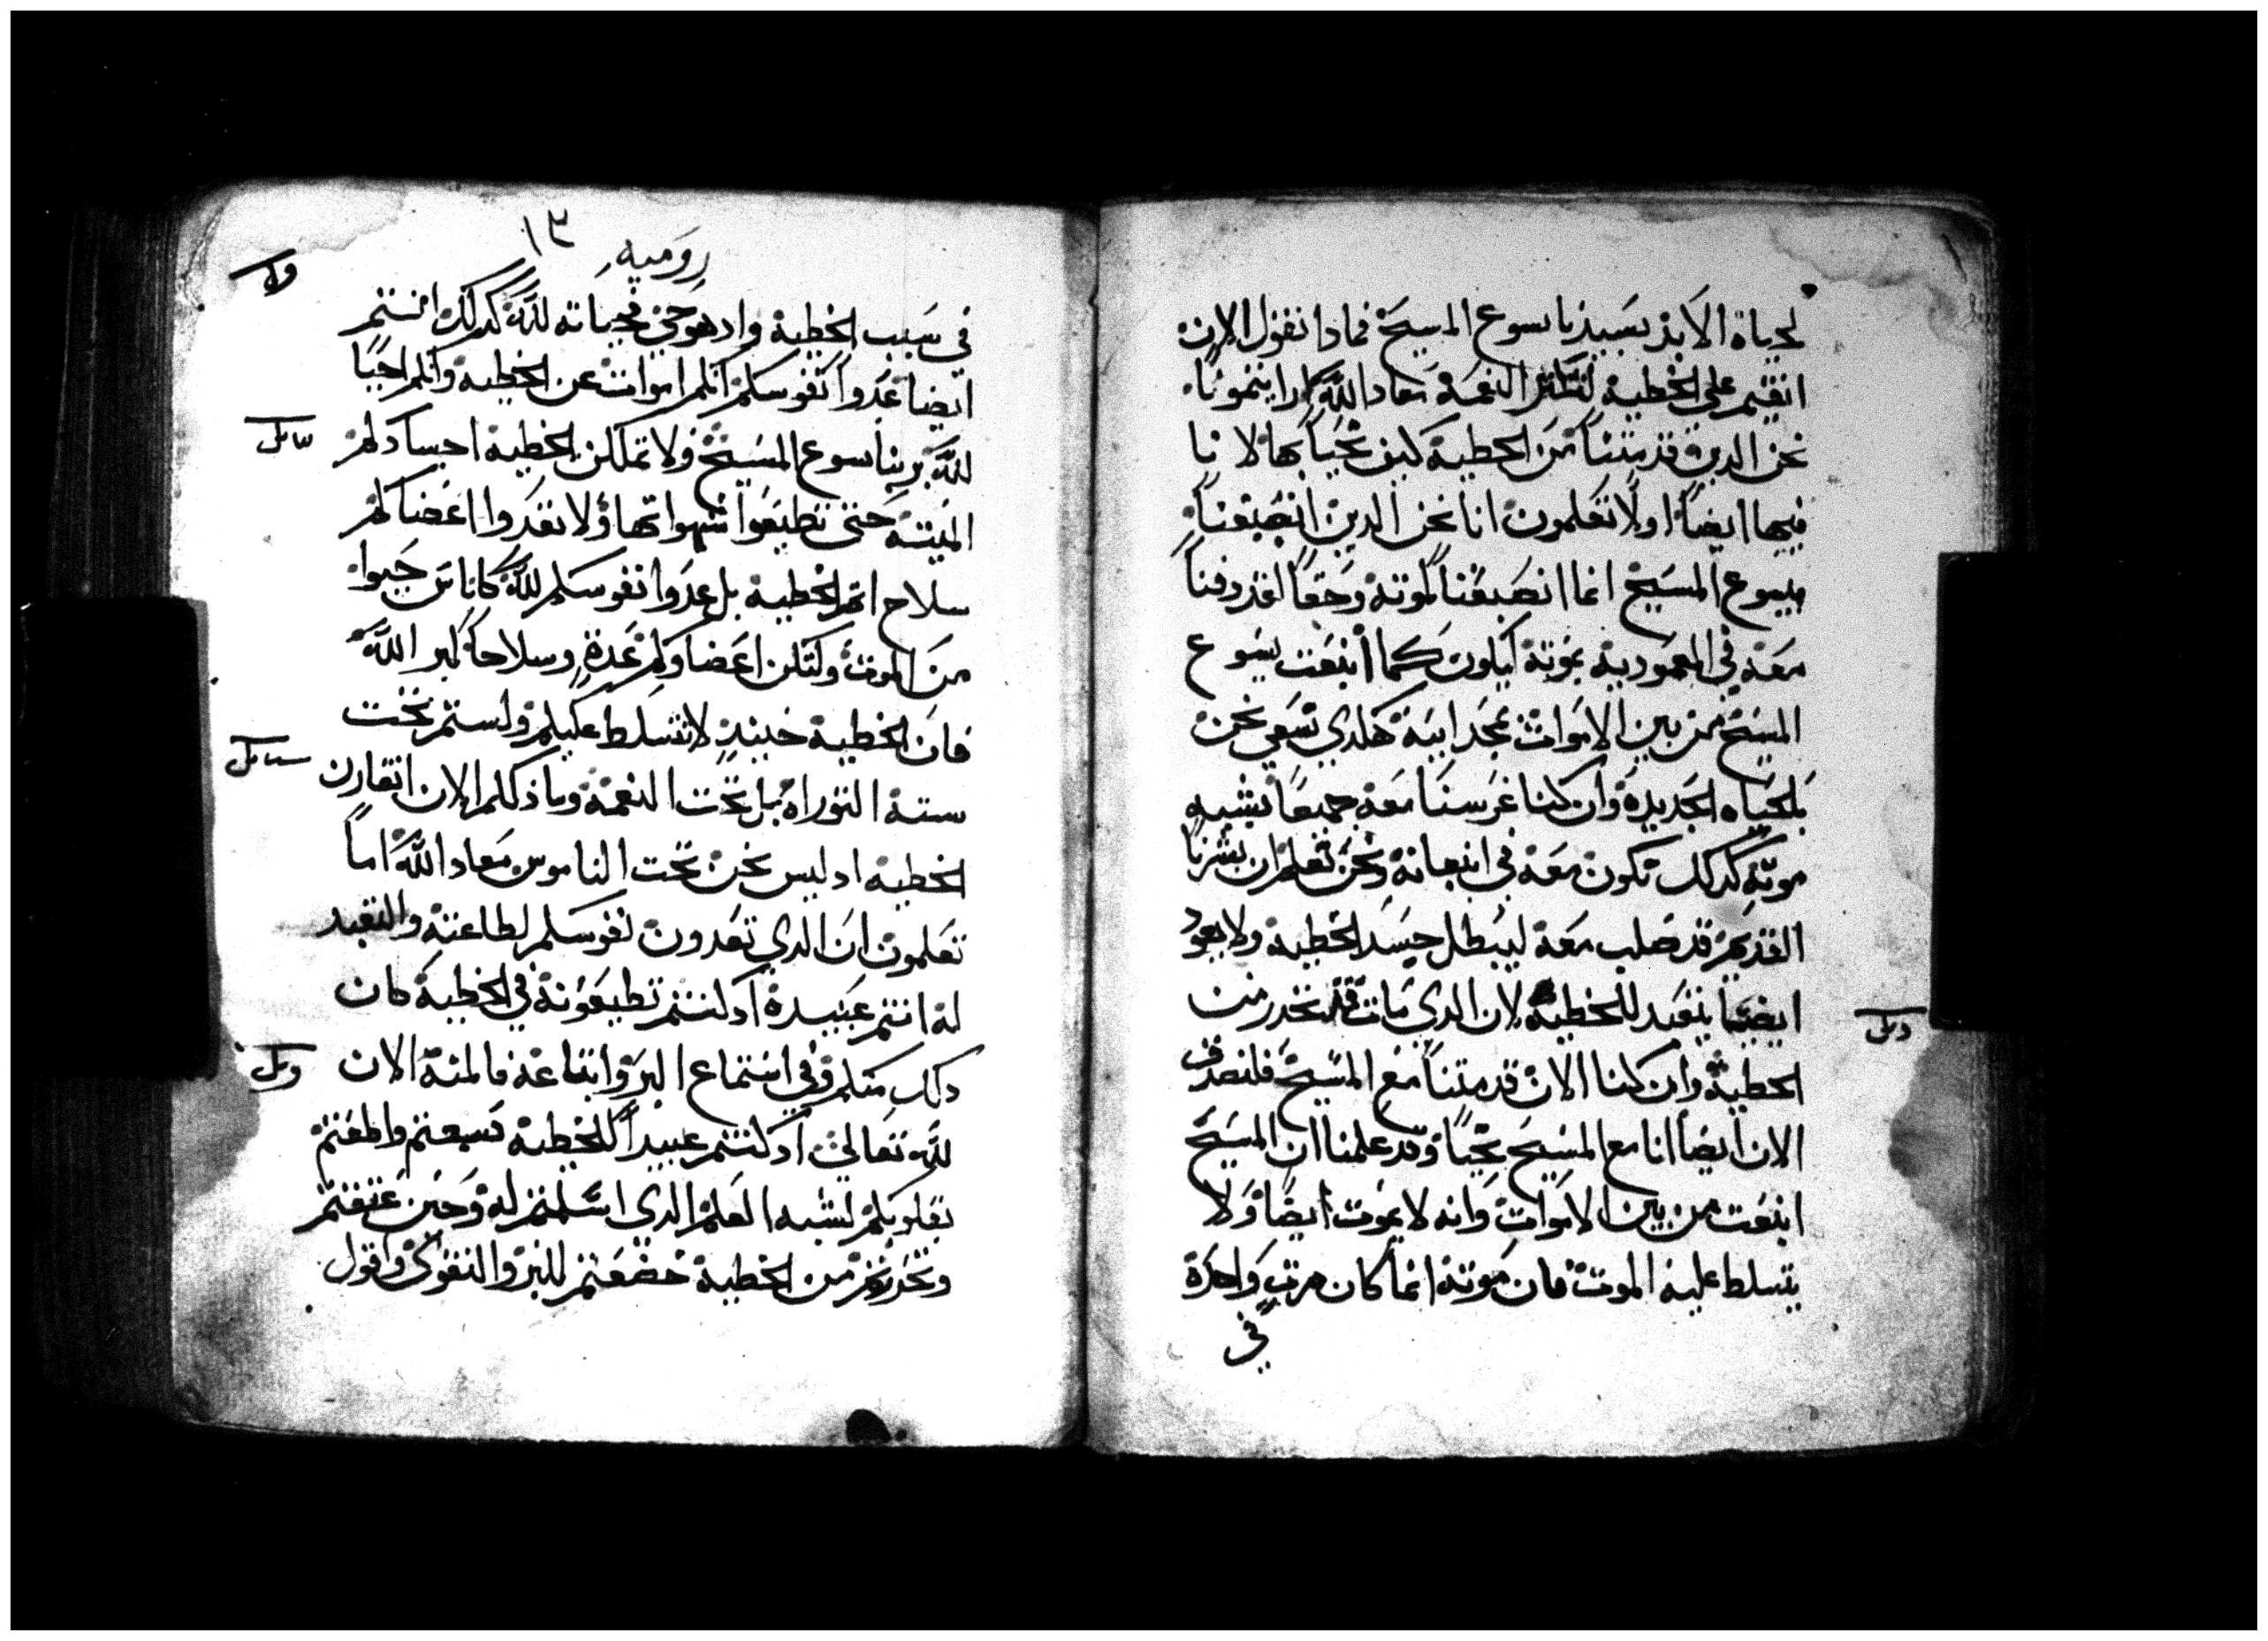 لحياة الابد بسيدنا يسوع المسيح فمادا نقول الان
انقيم علي الخطيه لتكثر النعمه معاد الله ادا
نحن الدين قد متنا من الخطيه كيف نحيا بها لانا
فيها ايضا اولا تعلمون انا نحن الدين انصبغنا
بيسوع المسيح انما انصبغنا لموته وحقا لقد دفنا
معه في المعموديه بموته ليكون كما انبعت يسوع
المسيح من بين الاموات بمجد ابيه هكدي نسعي نحن
بالحياه الجديده وان كنا غرسنا معه جميعا بشبه
موته كدلك نكون معه في انبعاته ونحن نعلم ان بشرنا
القديم قد صلب معه ليبطل جسد الخطيه ولا يعود
ايضا يتعبد للخطيه لان الدي مات قد تحرر من
الخطيه وان كنا الان قد متنا مع المسيح فلنصدق
الان ايضا انا مع المسيح نحيا وقد علمنا ان المسيح
انبعت من بين الاموات وانه لا يموت ايضا ولا
يتسلط عليه الموت فان موته انما كان مرة واحدة
في
روميه ١٣
في سبب الخطيه واد هو حي فحياته لله كدلك انتم
ايضا عدوا نفوسكم انكم اموات عن الخطيه وانكم احيا
لله بربنا يسوع المسيح ولا تملكن الخطيه اجسادكم
الميته حتى تطيعوا شهواتها ولا تعدوا اعضاكم
سلاح اتم الخطيه بل عدوا نفوسكم لله كاناس حيوا
من الموت ولتكن اعضاوكم عدة وسلاحا لبر الله
فان الخطيه حينيد لا تتسلط عليكم ولستم تحت
سنة التوراه بل تحت النعمه وما دلكم الان انقارن
الخطيه اد ليس نحن تحت الناموس معاد الله اما
تعلمون ان الدي تعدون نفوسكم لطاعته والتعبد
له انتم عبيده اد كنتم تطيعونه في الخطيه كان
دلك منكم وفي استماع البر واتباعه فالمنه الان
لله تعالي اد كنتم عبيدا للخطيه فسمعتم واطعتم
بقلوبكم لشبه العلم الدي اسلمتم له وحين عتقتم
وتحررتم من الخطيه خضعتم للبر والتقوى واقول